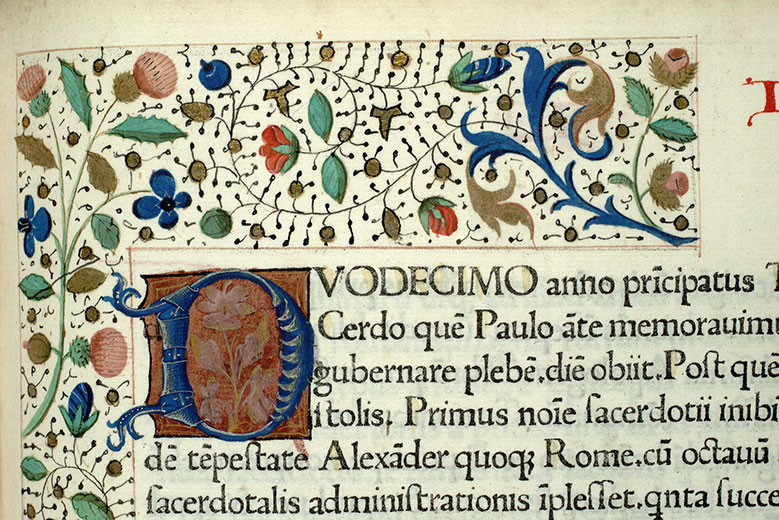 DVODECIMO anno prīcipatus T
Cerdo quē Paulo āte memorauimu
gubernāre plebē.diē obiit.Poſt que
iſtolis. Primus noīe ſacerdotii inibi
dē tēpeſtate Alexāder quoqꝫ Rome.cū octauū
ſacerdotalis adminiſtrationis īpleſſet.qnta ſucce